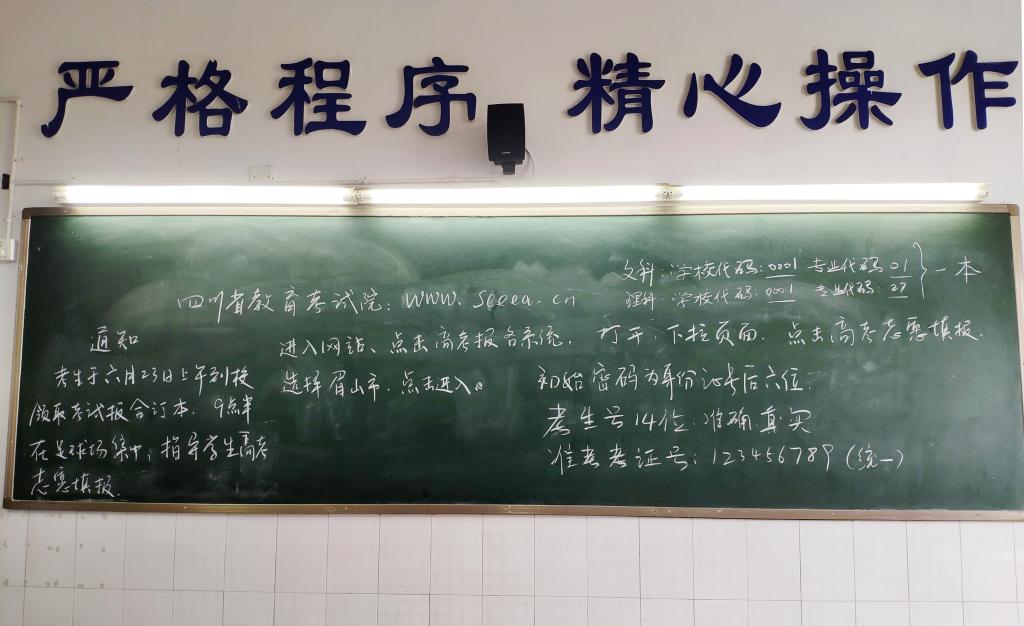 严格程序 精心操作
文科:学校代码:0001 专业代码 01
理科:学校代码:0001 专业代码:27
一本
四川省教育考试院:www.sceea.cn
通知
考生于六月23日上午到校
领取考试报合订本.9点半
在足球场集中,指导学生高考
志愿填报.
进入网站、点击高考报名系统,打开,下拉页面.点击高考志愿填报.
选择眉山市.点击进入。
初始密码为身份证号后六位.
考生号14位:准确真实
准考考证号:123456789(统一)